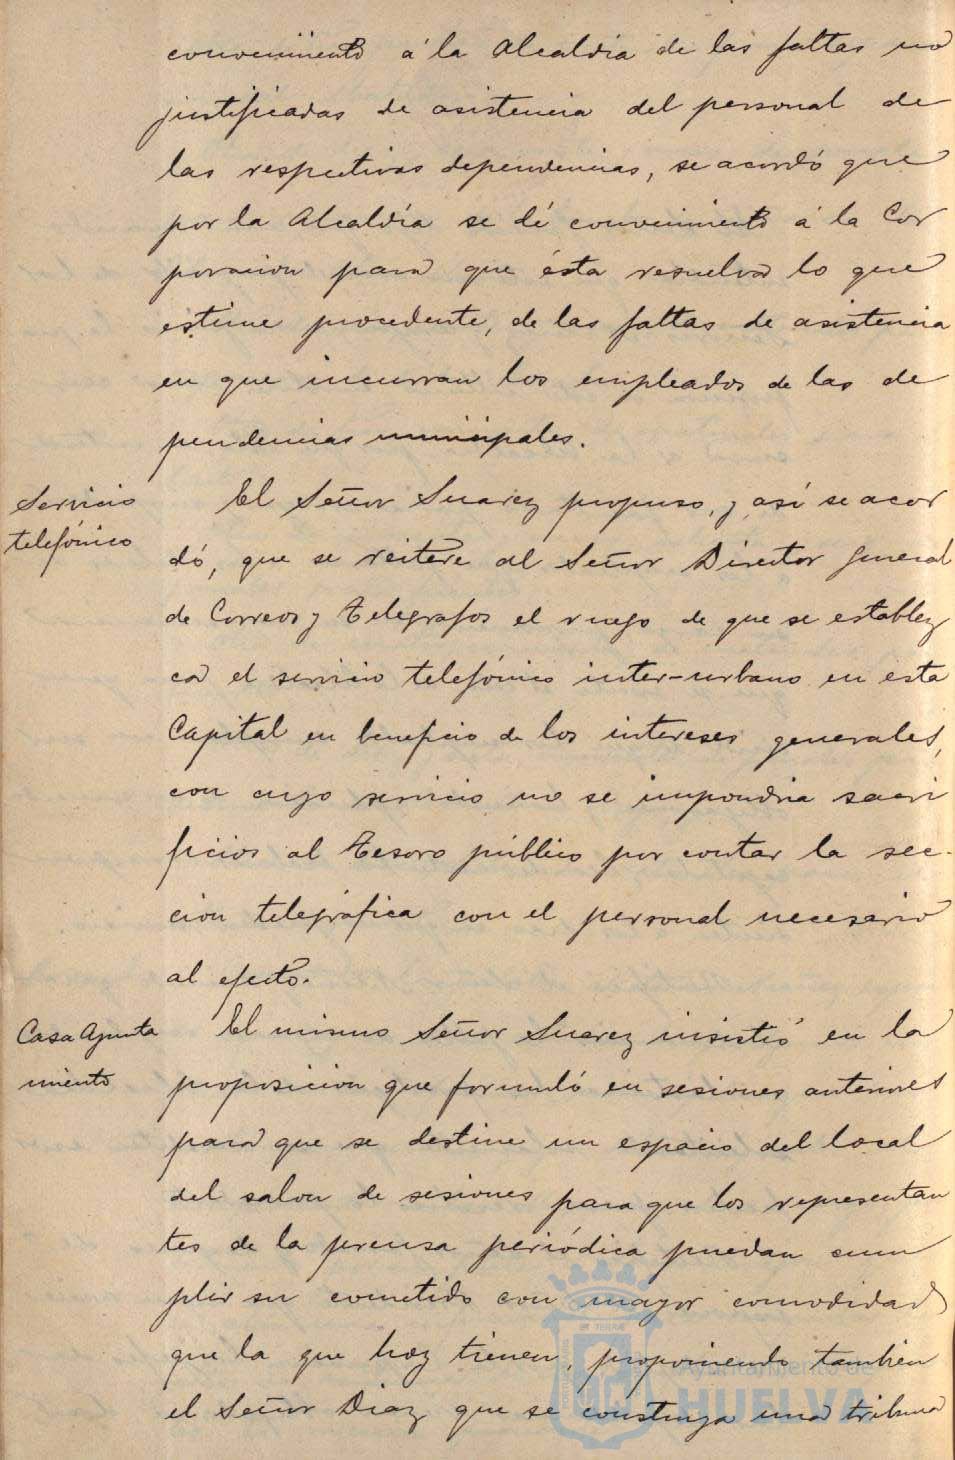 conocimiento á la Alcaldia de las faltas no
justificadas de asistencia del personal de
las respectivas dependencias, se acordó que
por la Alcaldía se dé conocimiento á la Cor
poracion para que ésta resuelva lo que
estime procedente, de las faltas de asistencia
en que incurran los empleados de las de
pendencias municipales.
Servicio
telefónico
El Señor Suarez propuso, y así se acor
dó, que se reitere al Señor Director General
de Correos y Telegrafos el ruego de que se establez
ca el servicio telefónico inter-urbano en esta
Capital en beneficio de los intereses generales,
con cuyo servicio no se impondria sacri
ficios al Tesoro público por contar la sec-
cion telegráfica con el personal necesario
al efecto.
Casa Ayunta
miento
El mismo Señor Suarez insistió en la
proposicion que formuló en sesiones anteriores
para que se destine un espacio del local
del salon de sesiones para que los representan
tes de la prensa periódica puedan cum
plir su cometido con mayor comodidad
que la que hoy tienen, proponiendo tambien
el Señor Diaz que se construya una tribuna
Ayuntamiento de
HUELVA